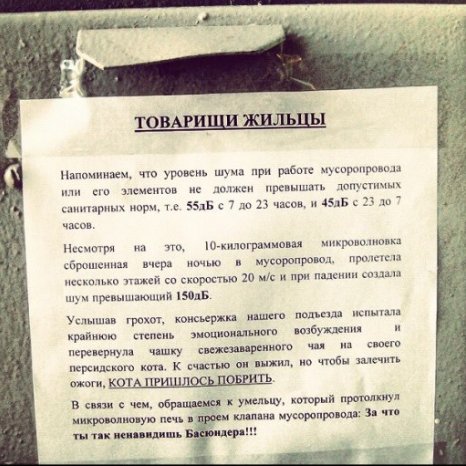 ТОВАРИЩИ ЖИЛЬЦЫ
Напоминаем, что уровень шума при работе мусоропровода
или его элементов не должен превышать допустимых
санитарных норм, т.е. 55дБ с 7 до 23 часов, и 45дБ с 23 до 7
часов.
Несмотря на это, 10-килограммовая микроволновка
сброшенная вчера ночью в мусоропровод, пролетела
несколько этажей со скоростью 20 м/с и при падении создала
шум превышающий 150дБ.
Услышав грохот, консьержка нашего подъезда испытала
крайнюю степень эмоционального возбуждения и
перевернула чашку свежезаваренного чая на своего
персидского кота. К счастью он выжил, но чтобы залечить
ожоги, КОТА ПРИШЛОСЬ ПОБРИТЬ.
В связи с чем, обращаемся к умельцу, который протолкнул
микроволновую печь в проем клапана мусоропровода: За что
ты так ненавидишь Басюндера!!!